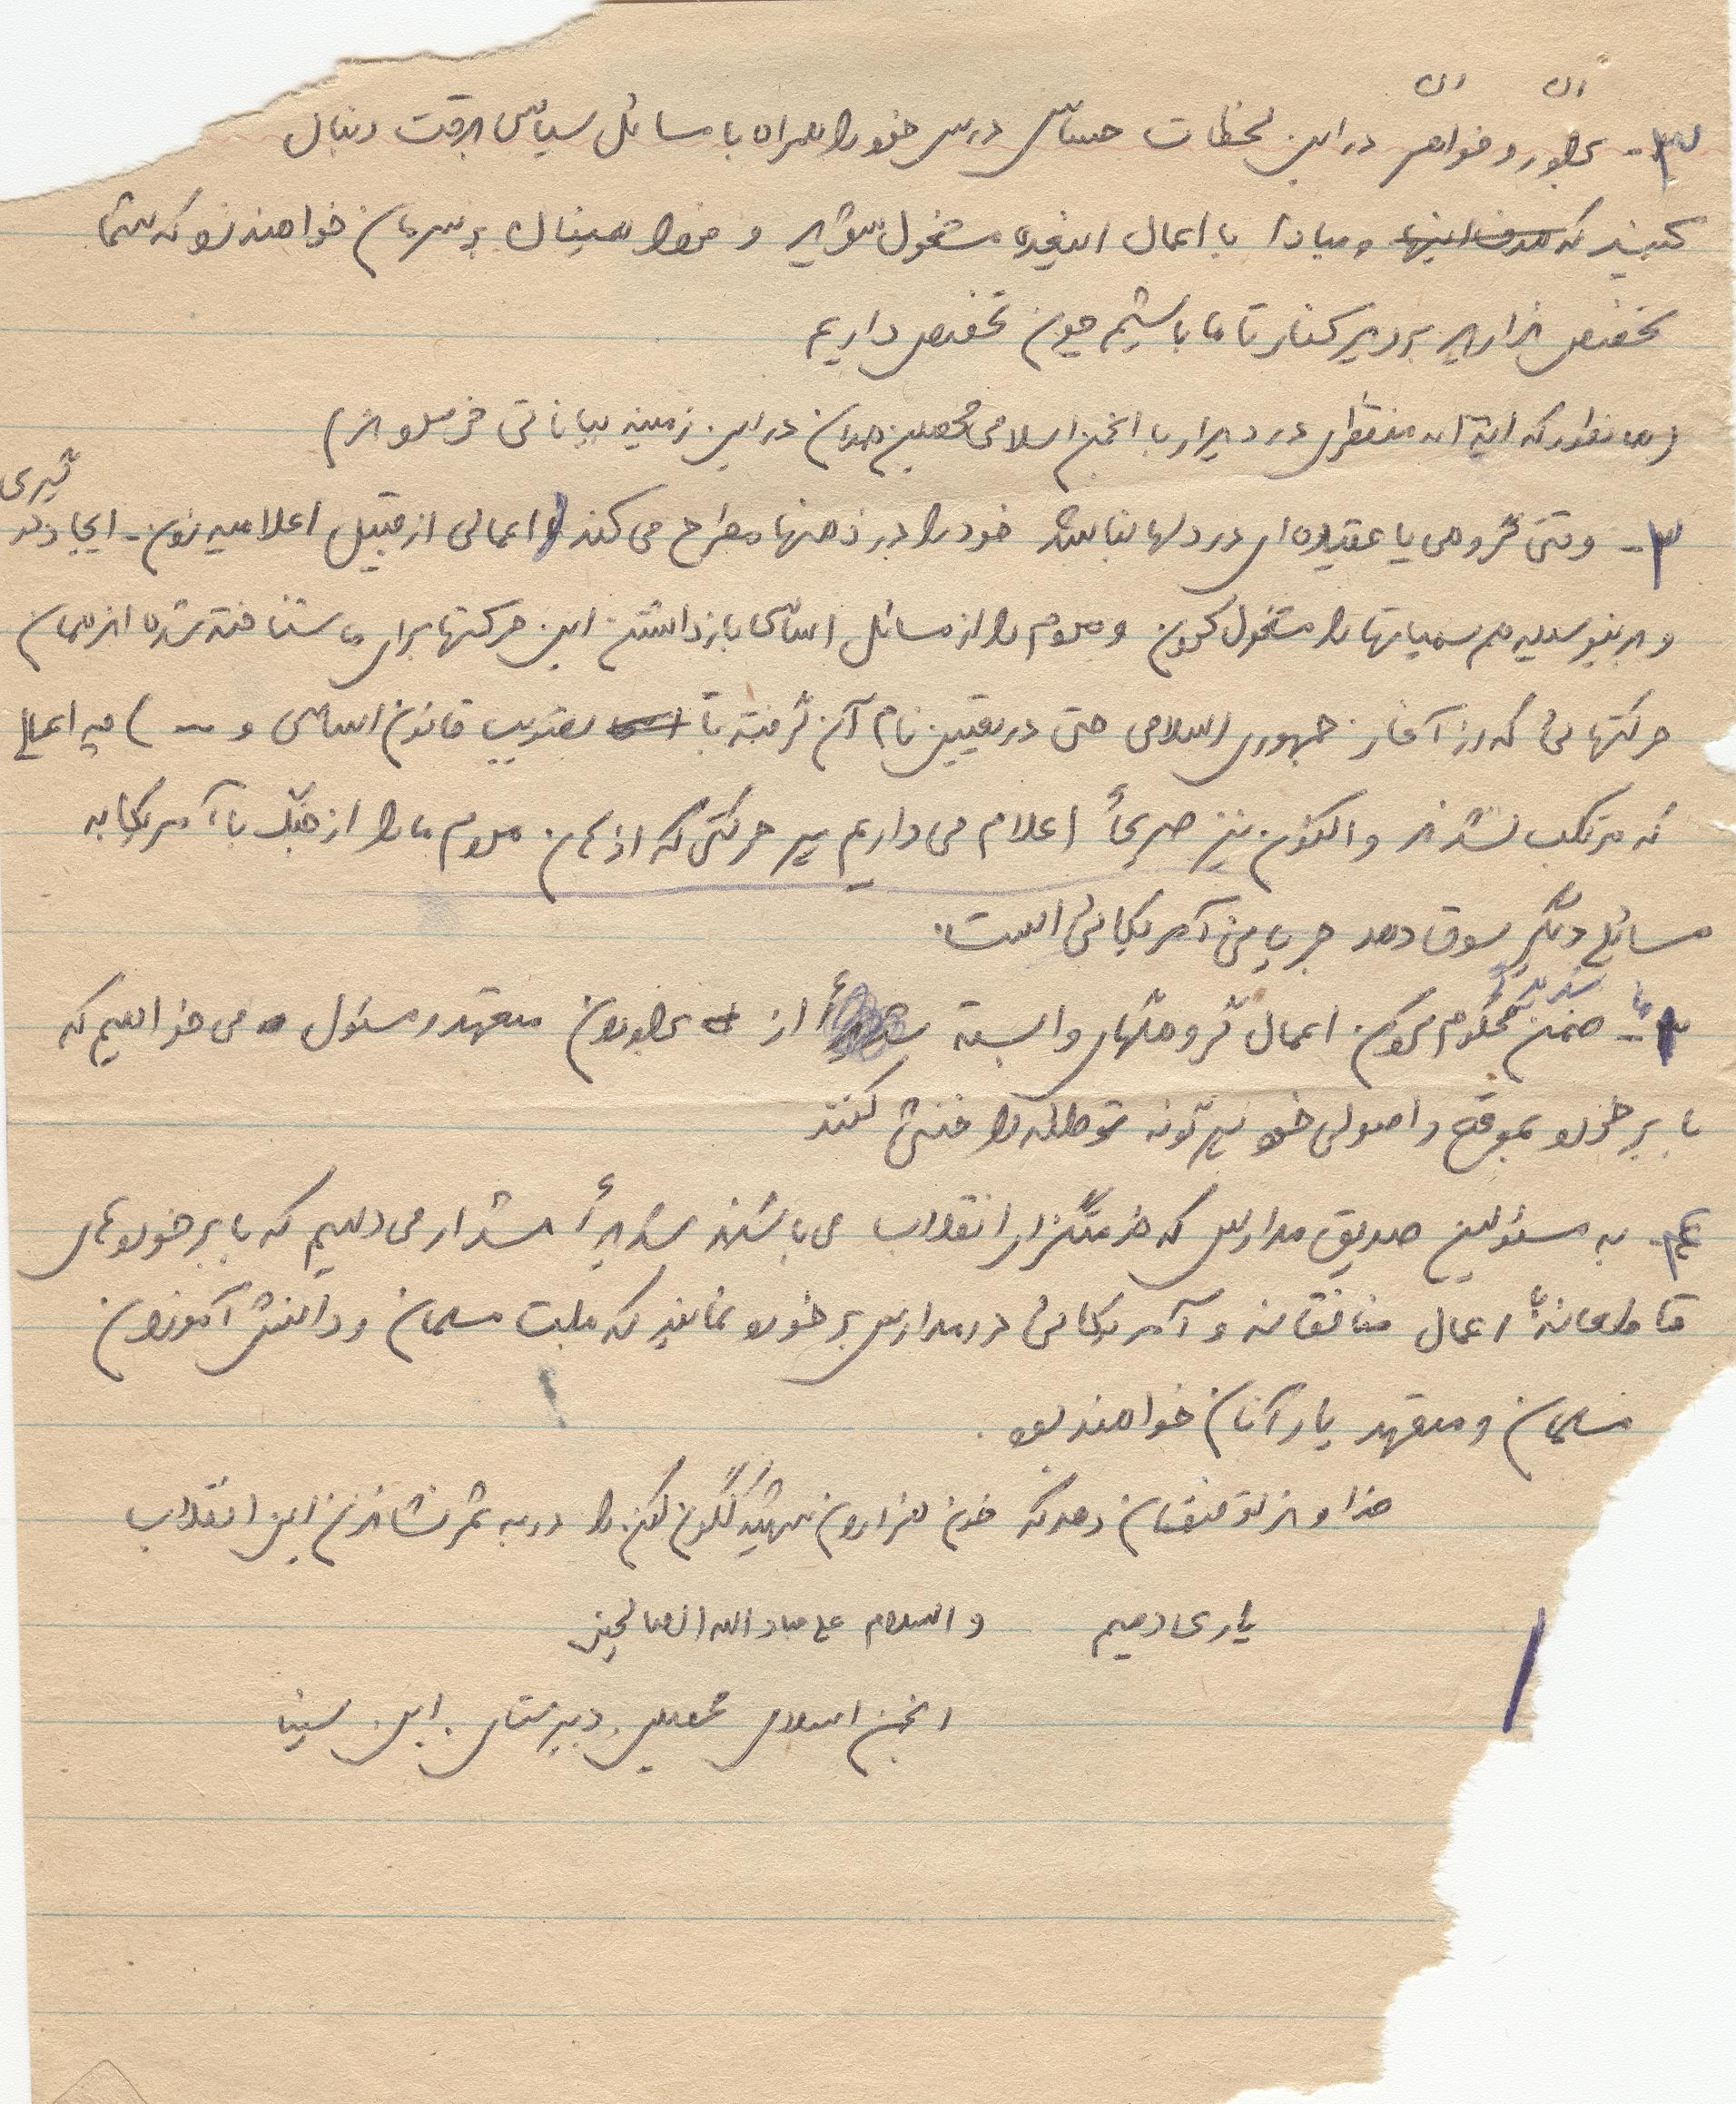 ۲- برادران و خواهران در این لحظات حساس درس خود را همراه با مسائل سیاسی بدقت دنبال
کنید که و مبادا با اعمال اینچنین مشغول شوید و فردا همینان بر سرمان خواهند زد که شما
تخصص ندارید بروید کنار تا ما باشیم چون تخصص داریم
(همانطور که آیة اله منتظری در دیدار با انجمن اسلامی محصلین همدان در این زمینه بیاناتی فرمودند)
۳- وقتی گروهی یا عقیده ای در دلها نباشد خود را در ذهنها مطرح می کند و اعمالی از قبیل اعلامیه زدن - ایجاد درگیری
و بدینوسیله هم سمپاتها را مشغول کردن و مردم را از مسائل اساسی بازداشتن این حرکتها برای ما شناخته شده اند همان
حرکتهائی که از آغاز جمهوری اسلامی حتی در تعیین نام آن گرفته تا تصویب قانون اساسی و ...) چه اعمالی
که مرتکب نشدند و اکنون نیز صریحاً اعلام می داریم هر حرکتی که اذهان مردم ما را از جنگ با آمریکا به
مسائل دیگر سوق دهد جریانی آمریکائی است.
ما ضمن محکوم کردن شدید اعمال گروهکهای وابسته از برادران متعهد و مسئول می خواهیم که
با برخورد بموقع و اصولی خود هر گونه توطئه را خنثی کنند
۴- به مسئولین صدیق مدارس که خدمتگزار انقلاب می باشند شدیداً هشدار می دهیم که با برخوردهای
قاطعانه با اعمال منافقانه و آمریکائی در مدارس برخورد نمایند که ملت مسلمان و دانش آموزان
مسلمان و متعهد یار آنان خواهند بود.
خداوند توفیقمان دهد که خون هزاران شهید گلگون کفن را در به ثمر نشاندن این انقلاب
یاری دهیم والسلام علی عباد الله الصالحین
انجمن اسلامی محصلین دبیرستان ابن سینا